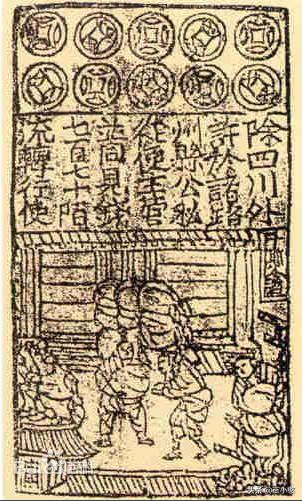 除四川外
許於諸路
州縣公私
從便主管
並同見錢
七百七十陌
流轉行使
Bai百科